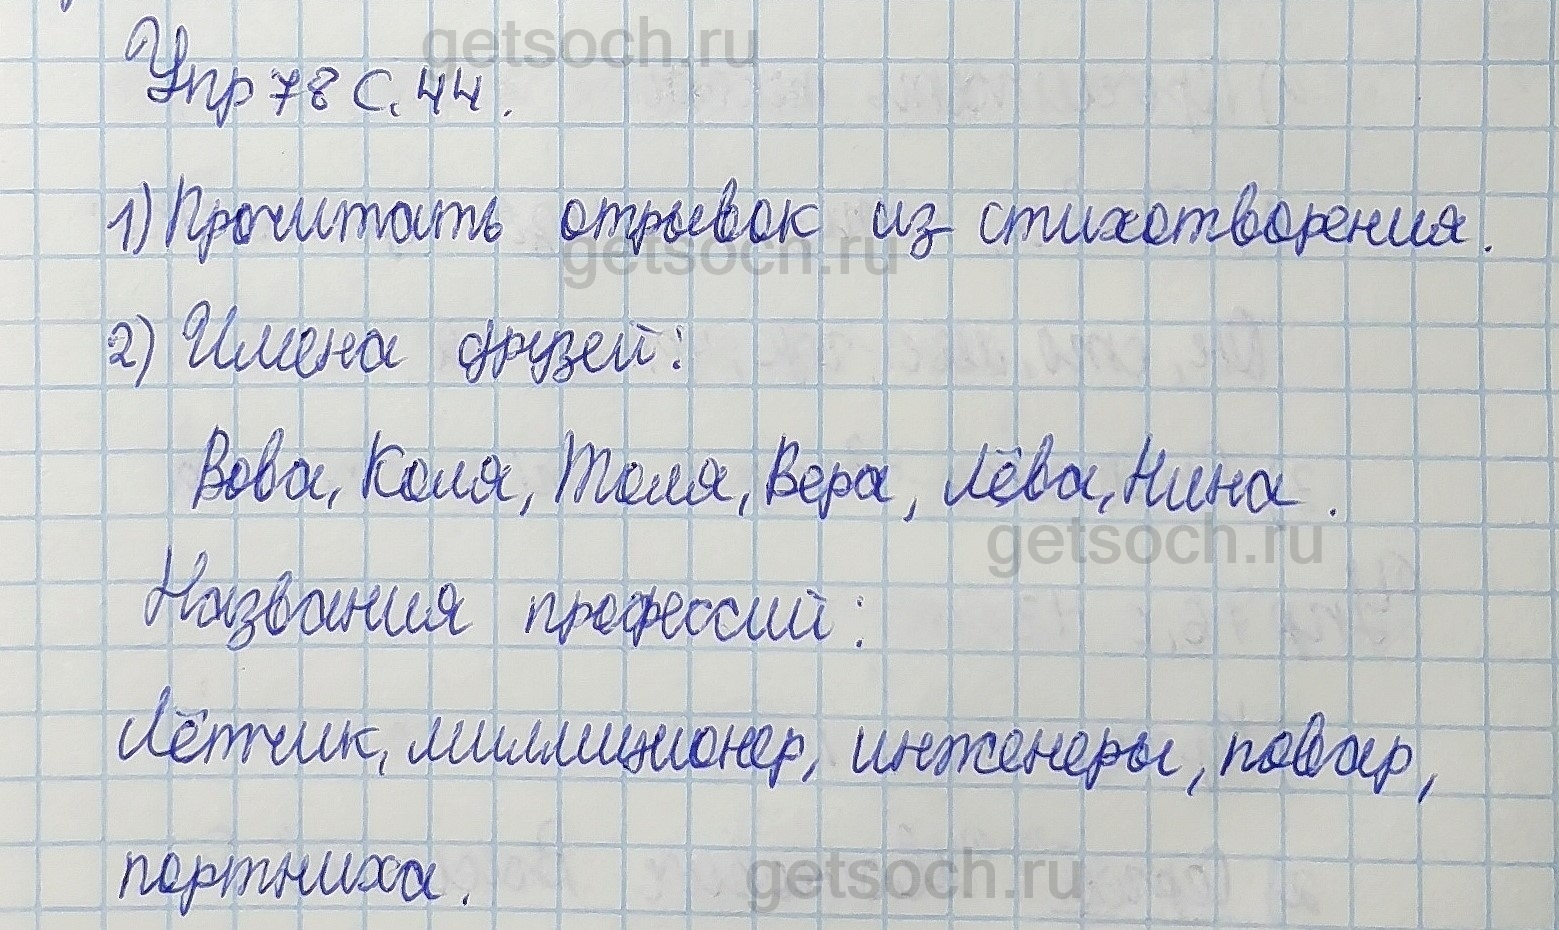 getsoch.ru
Упр 78 с. 44.
1) Прочитать отрывок из стихотворения.
getsoch.ru
2) Имена друзей:
Вова, Коля, Толя, Вера, Лёва, Нина.
getsoch.ru
Названия профессий:
Лётчик, миллиционер, инженеры, повар,
портниха.
getsoch.ru